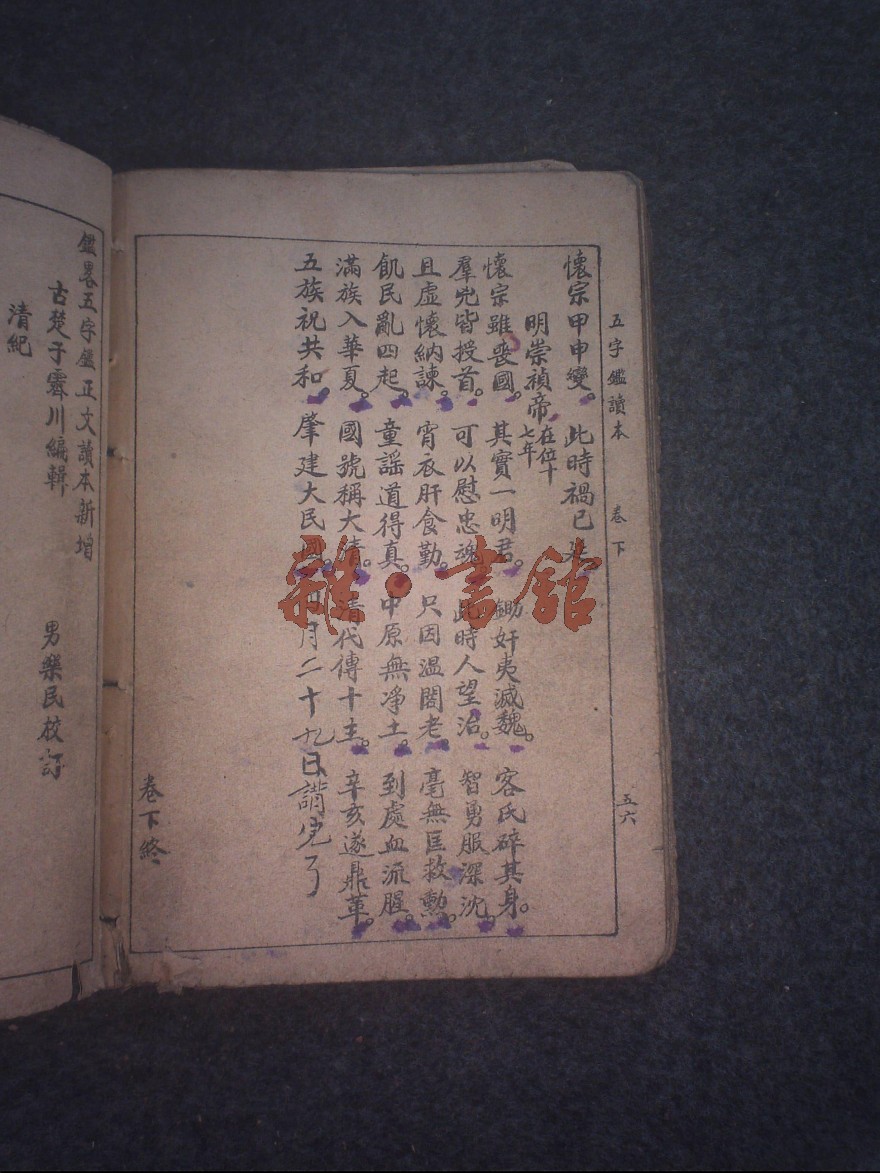 五字鑑讀本 卷下 五六
懷宗甲申變。此時禍已
明崇禎帝 在位十七年
懷宗雖喪國。其實一明君。鋤奸夷滅魏。客氏碎其身。
羣兇皆授首。可以慰忠魂。此時人望治。智勇服深沈。
且虛懷納諫。宵衣肝食勤。只因温閣老。毫無匡救勳。
飢民亂四起。童謠道得真。中原無凈土。到處血流腥。
滿族入華夏。國號稱大清。清代傳十主。辛亥遂鼎革。
五族祝共和。肇建大民國。四月二十九日講完了
卷下終
鑑畧五字鑑正文讀本新增
古楚子霽川編輯 男樂民校訂
清紀
雜·書館